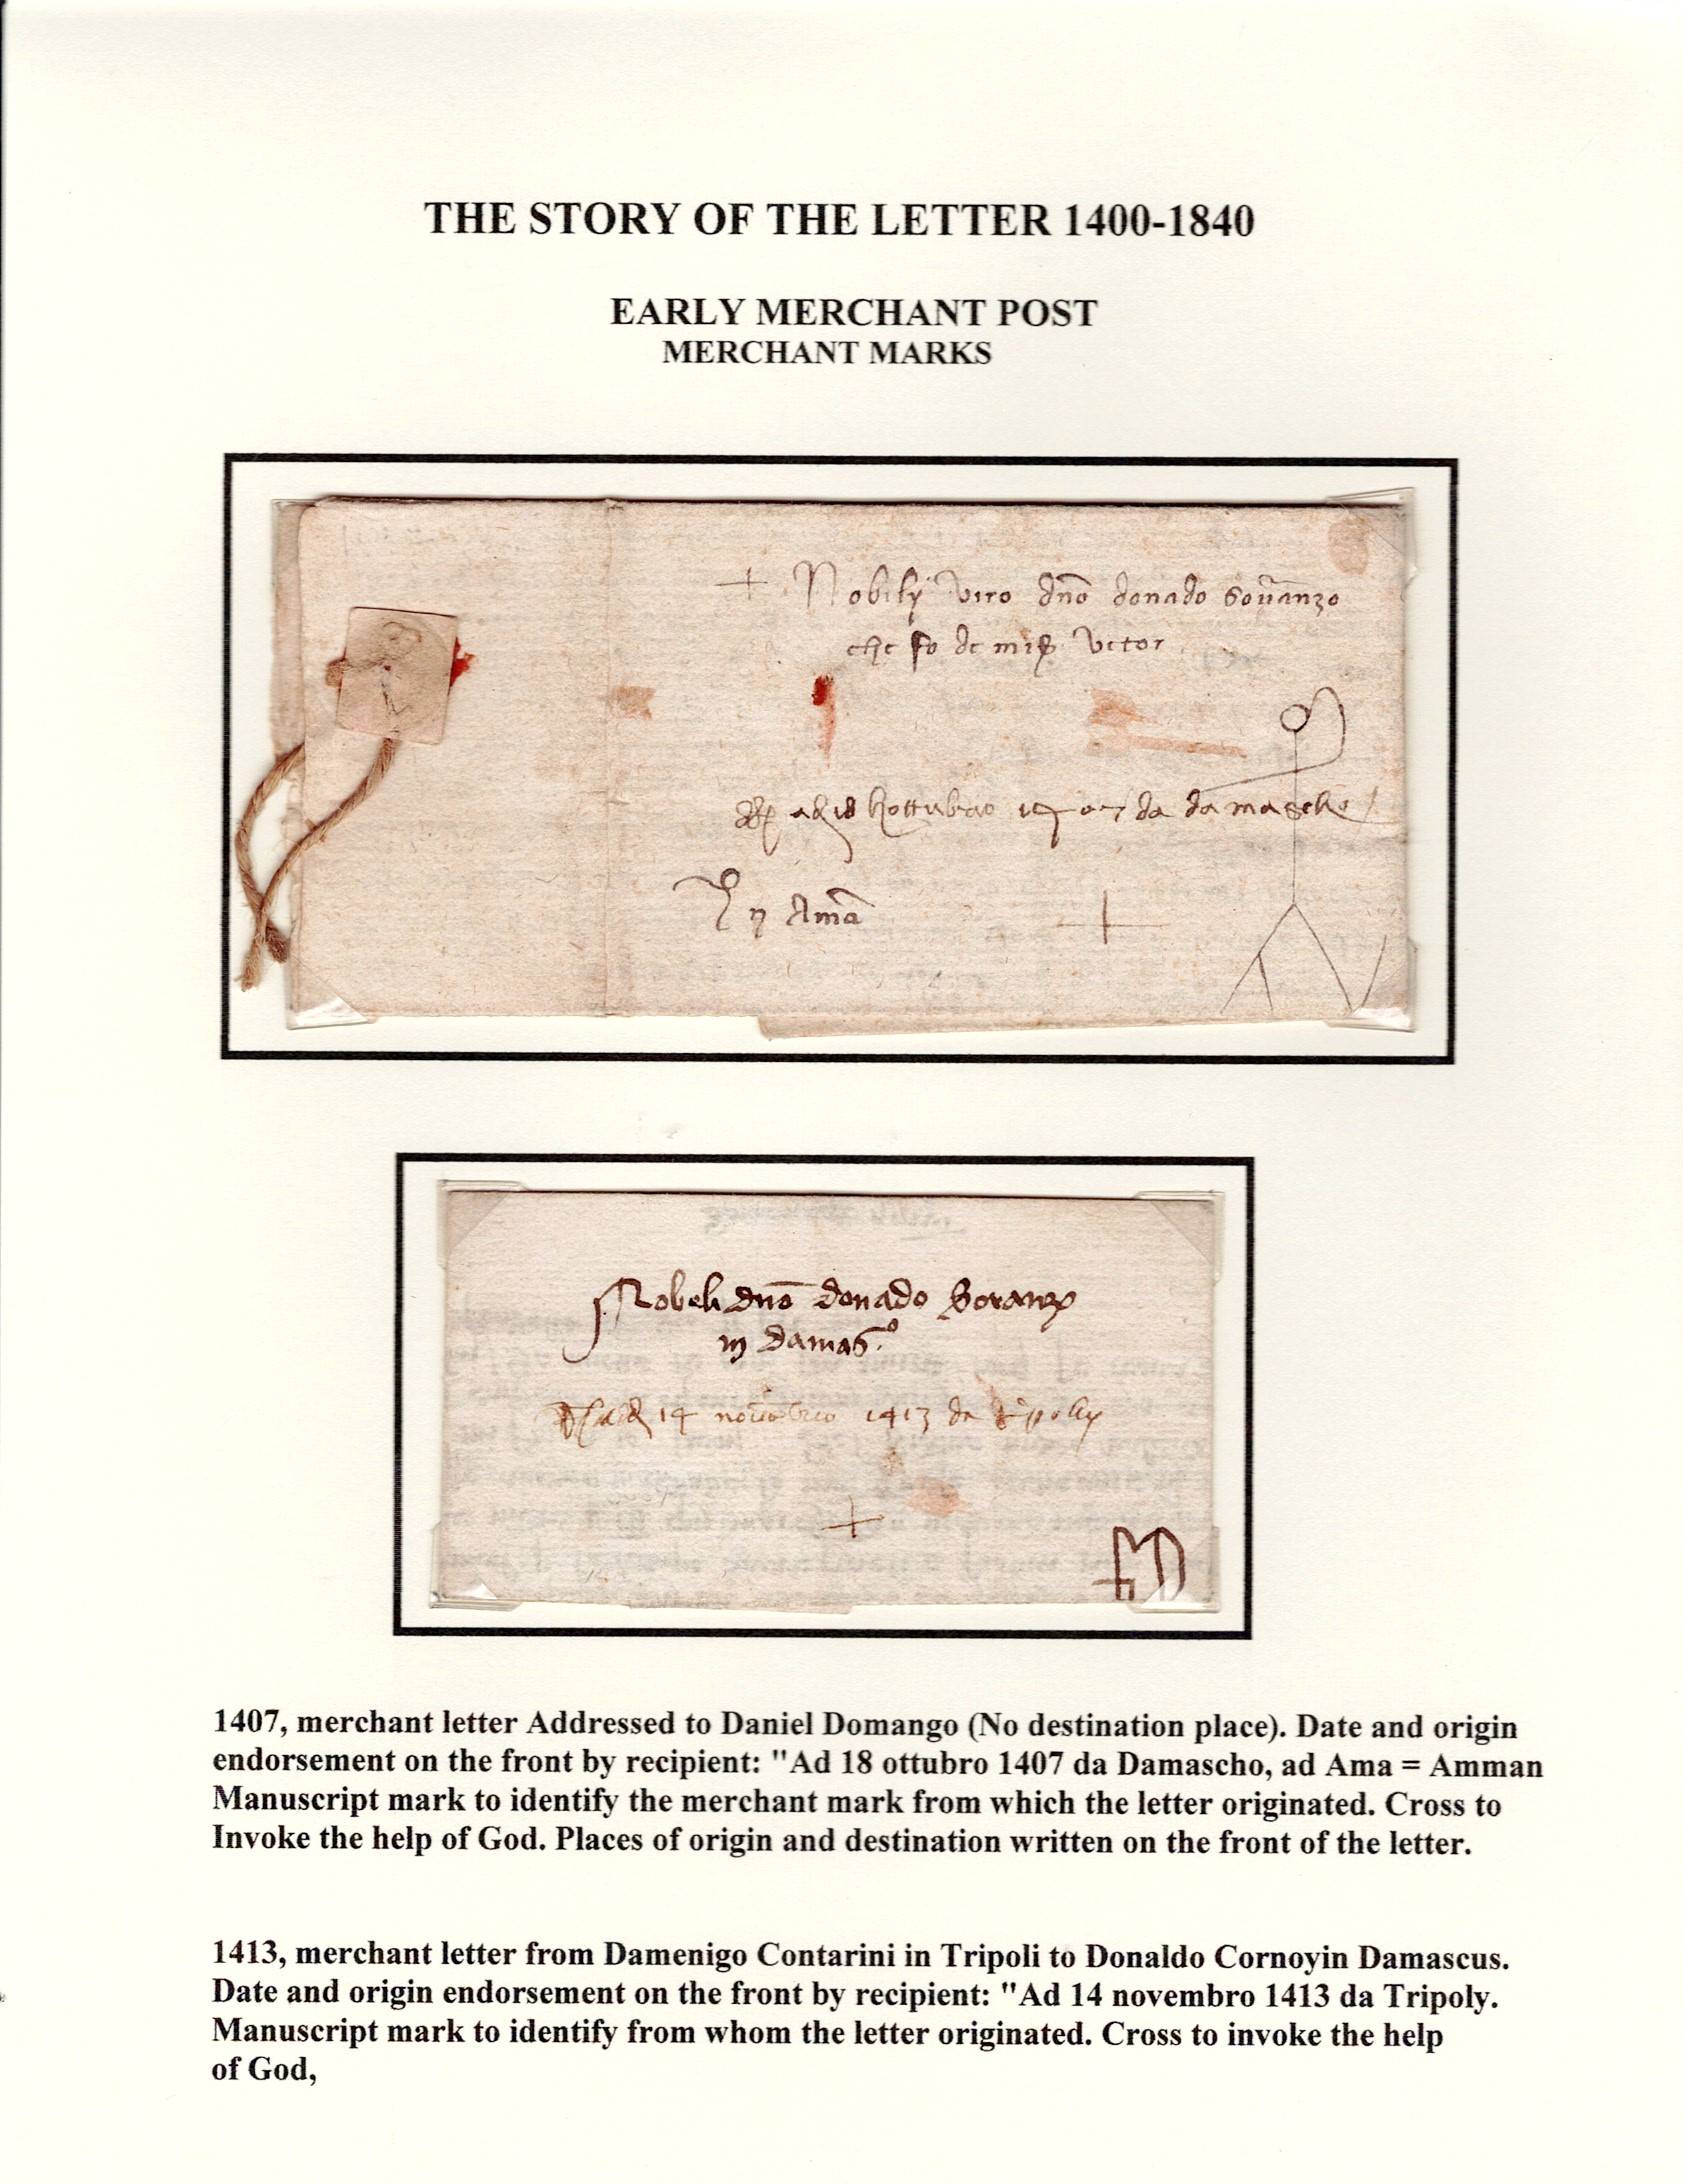 THE STORY OF THE LETTER 1400-1840
EARLY MERCHANT POST
MERCHANT MARKS
+ Nobily viro dno donado
che fo de vetor
ad 18 1407 da damascho
In Ama
+
Nobeli dno donado
in damas.o
14 1413 da
+
1407, merchant letter Addressed to Daniel Domango (No destination place). Date and origin
endorsement on the front by recipient: "Ad 18 ottubro 1407 da Damascho, ad Ama = Amman
Manuscript mark to identify the merchant mark from which the letter originated. Cross to
Invoke the help of God. Places of origin and destination written on the front of the letter.
1413, merchant letter from Damenigo Contarini in Tripoli to Donaldo Cornoyin Damascus.
Date and origin endorsement on the front by recipient: "Ad 14 novembro 1413 da Tripoly.
Manuscript mark to identify from whom the letter originated. Cross to invoke the help
of God,